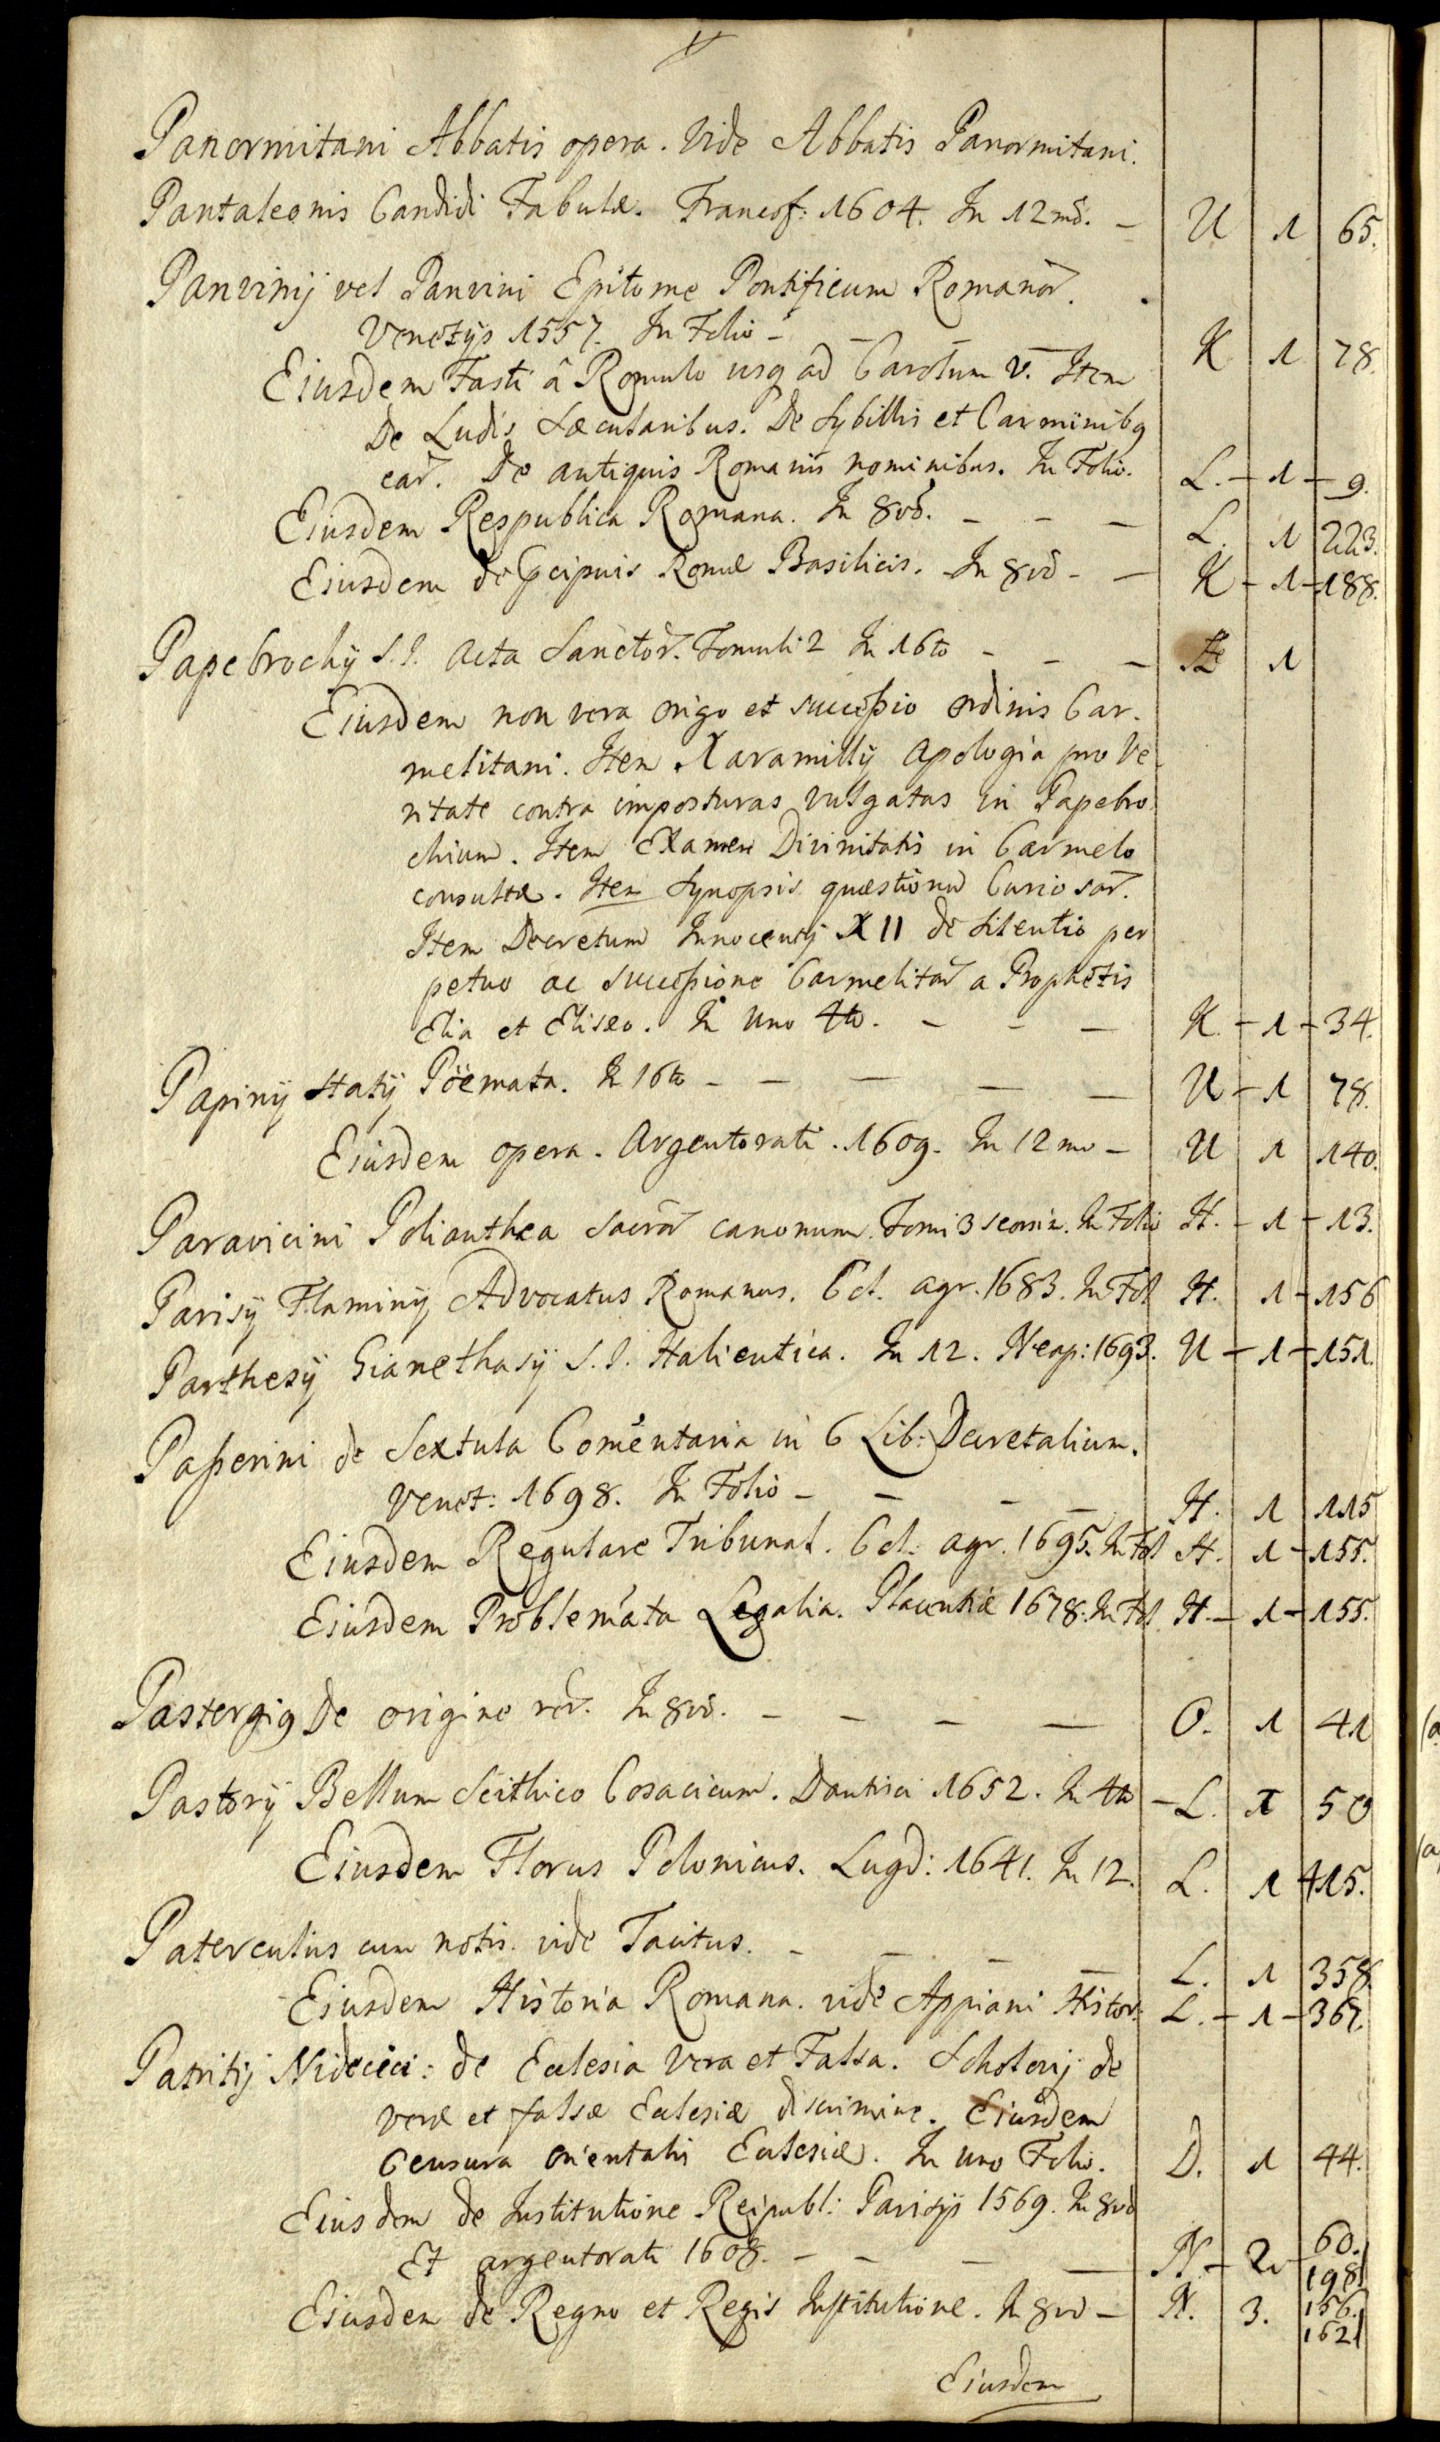 Panormitani Abbatis opera. vide Abbatis Panormitani.
Pantaleonis Candidi Fabulæ. Francof: 1604. In 12mō. – U 1 65.
Panvinij vel Panvini Epitome Pontificum Romanor̃.
Venetijs 1557. In Folio – – – – K 1 78.
Eiusdem Fasti â Romulo usq ad Carolum V. Item
De Ludis Sæcularibus. De Sybillis et Carminibq
ear̃. De antiquis Romanis nominibus. In Folio. L. – 1 – 9.
Eiusdem Respublica Romana. In 8vō. – – – L. 1 223.
Eiusdem de Pcipuis Romæ Basilicis. In 8vō – – K – 1 – 188.
Papebrochij S.I. Acta Sanctor̃. Tomuli 2 In 16to – – – H 1
Eiusdem non vera origo et successio ordinis Car-
melitani. Item Xaramilly Apologia pro Ve-
ritate contra imposturas vulgatas in Papebro
chium. Item Examen Divinitatis in Carmelo
consultæ. Item Synopsis quæstionū Curiosar̃.
Item Decretum Innocentij XII de silentio per
petuo ac successione Carmelitar̃ a Prophetis
Elia et Eliseo. In uno 4to. – – – K – 1 – 34.
Papinij Statij Pöemata. In 16to – – – – – U – 1 78.
Eiusdem opera. Argentorati. 1609. In 12mo – U 1 140.
Paravicini Polianthea sacror̃ canonum. Tomi 3 seorsiæ. In Folio H. – 1 – 13.
Parisij Flaminij Advocatus Romanus. Col. agr. 1683. In Fol H. 1 – 156
Parthesij Gianethasij S.I. Halieutica. In 12. Neap: 1693. U – 1 – 151.
Passerini de Sextula Comentaria in 6 Lib: Decretalium.
Venet: 1698. In Folio – – – – H. 1 115
Eiusdem Regulare Tribunal. Col. agr. 1695. In Fol H. 1 – 155.
Eiusdem Problemata Legalia. Placentiæ 1678. In Fol H. – 1 – 155.
Pastergig De origine rer̃. In 8vō. – – – – O. 1 41
Pastorij Bellum Scithico Cosacicum. Dantisci 1652. In 4to – L. 1 50
Eiusdem Florus Polonicus. Lugd: 1641. In 12. L. 1 415.
Paterculus cum notis. vide Tacitus. – – – – L. 1 358
Eiusdem Historia Romana. vide Appiani Histor: L. – 1 – 367.
Patritij Nidecici: de Eclesia vera et Falsa. Scholarij de
veræ et falsæ Eclesiæ discrimine. Eiusdem
Censura orientalis Eclesiæ. In uno Folio. D. 1 44.
Eiusdem de Institutione Reipubl: Parisijs 1569. In 8vō
Et argentorati 1608. – – – – N. – 2 60. 198
Eiusdem de Regno et Regis Institutione. In 8vō – N. 3. 156. 162
Eiusdem